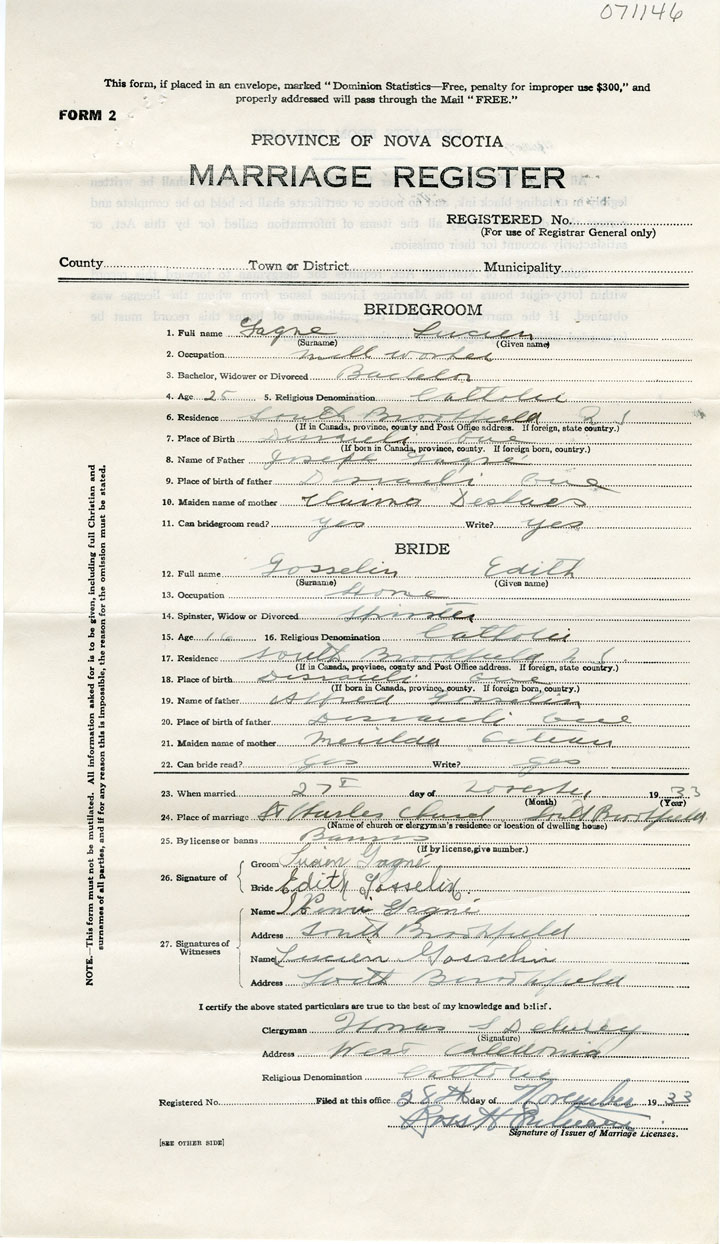 071146
This form, if placed in an envelope, marked "Dominion Statistics—Free, penalty for improper use $300," and
properly addressed will pass through the Mail "FREE."
FORM 2
PROVINCE OF NOVA SCOTIA
MARRIAGE REGISTER
REGISTERED No.
(For use of Registrar General only)
County Town or District Municipality
BRIDEGROOM
1. Full name Gagne Lucien
(Surname) (Given name)
2. Occupation mill worker
3. Bachelor, Widower or Divorced Bachelor
4. Age 25 5. Religious Denomination Catholic
6. Residence South Brookfield
(If in Canada, province, county and Post Office address. If foreign, state country.)
7. Place of Birth Disraeli Que
(If born in Canada, province, county. If foreign born, country.)
8. Name of Father Joseph Gagne
9. Place of birth of father Disraeli Que
10. Maiden name of mother
11. Can bridegroom read? yes Write? yes
BRIDE
12. Full name Gosselin Edith
(Surname) (Given name)
13. Occupation Home
14. Spinster, Widow or Divorced Spinster
15. Age 16 16. Religious Denomination Catholic
17. Residence South Brookfield
(If in Canada, province, county and Post Office address. If foreign, state country.)
18. Place of birth Disraeli Que
(If born in Canada, province, county. If foreign born, country.)
19. Name of father Alfred Gosselin
20. Place of birth of father Disraeli Que
21. Maiden name of mother
22. Can bride read? yes Write? yes
23. When married 27 day of 1933
(Month) (Year)
24. Place of marriage St Charles Church South Brookfield
(Name of church or clergyman's residence or location of dwelling house)
25. By license or banns Banns
(If by license, give number.)
26. Signature of
Groom Lucien Gagné
Bride Edith Gosselin
27. Signatures of Witnesses
Name Gagné
Address South Brookfield
Name Lucien Gosselin
Address South Brookfield
I certify the above stated particulars are true to the best of my knowledge and belief.
Clergyman Thomas
(Signature)
Address West Caledonia
Religious Denomination Catholic
Registered No. Filed at this office 28th day of November 1933
Signature of Issuer of Marriage Licenses.
[SEE OTHER SIDE]
NOTE.—This form must not be mutilated. All information asked for is to be given, including full Christian and
surnames of all parties, and if for any reason this is impossible, the reason for the omission must be stated.